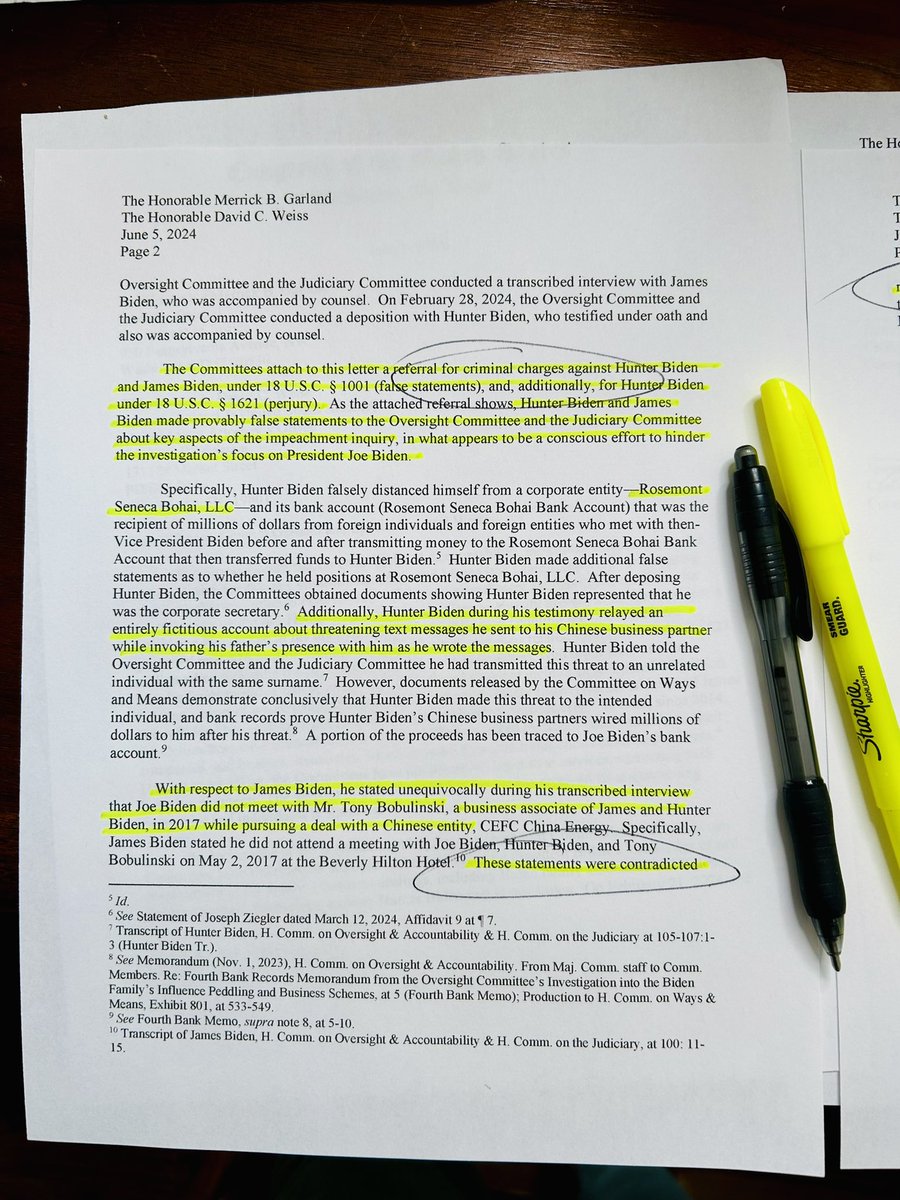 The Honorable Merrick B. Garland
The Honorable David C. Weiss
June 5, 2024
Page 2
Oversight Committee and the Judiciary Committee conducted a transcribed interview with James
Biden, who was accompanied by counsel.  On February 28, 2024, the Oversight Committee and
the Judiciary Committee conducted a deposition with Hunter Biden, who testified under oath and
also was accompanied by counsel.
The Committees attach to this letter a referral for criminal charges against Hunter Biden
and James Biden, under 18 U.S.C. § 1001 (false statements), and, additionally, for Hunter Biden
under 18 U.S.C. § 1621 (perjury).  As the attached referral shows, Hunter Biden and James
Biden made provably false statements to the Oversight Committee and the Judiciary Committee
about key aspects of the impeachment inquiry, in what appears to be a conscious effort to hinder
the investigation's focus on President Joe Biden.
Specifically, Hunter Biden falsely distanced himself from a corporate entity—Rosemont
Seneca Bohai, LLC—and its bank account (Rosemont Seneca Bohai Bank Account) that was the
recipient of millions of dollars from foreign individuals and foreign entities who met with then-
Vice President Biden before and after transmitting money to the Rosemont Seneca Bohai Bank
Account that then transferred funds to Hunter Biden.5  Hunter Biden made additional false
statements as to whether he held positions at Rosemont Seneca Bohai, LLC.  After deposing
Hunter Biden, the Committees obtained documents showing Hunter Biden represented that he
was the corporate secretary.6  Additionally, Hunter Biden during his testimony relayed an
entirely fictitious account about threatening text messages he sent to his Chinese business partner
while invoking his father's presence with him as he wrote the messages.  Hunter Biden told the
Oversight Committee and the Judiciary Committee he had transmitted this threat to an unrelated
individual with the same surname.7  However, documents released by the Committee on Ways
and Means demonstrate conclusively that Hunter Biden made this threat to the intended
individual, and bank records prove Hunter Biden's Chinese business partners wired millions of
dollars to him after his threat.8  A portion of the proceeds has been traced to Joe Biden's bank
account.9
With respect to James Biden, he stated unequivocally during his transcribed interview
that Joe Biden did not meet with Mr. Tony Bobulinski, a business associate of James and Hunter
Biden, in 2017 while pursuing a deal with a Chinese entity, CEFC China Energy.  Specifically,
James Biden stated he did not attend a meeting with Joe Biden, Hunter Biden, and Tony
Bobulinski on May 2, 2017 at the Beverly Hilton Hotel.10  These statements were contradicted
5 Id.
6 See Statement of Joseph Ziegler dated March 12, 2024, Affidavit 9 at ¶ 7.
7 Transcript of Hunter Biden, H. Comm. on Oversight & Accountability & H. Comm. on the Judiciary at 105-107:1-
3 (Hunter Biden Tr.).
8 See Memorandum (Nov. 1, 2023), H. Comm. on Oversight & Accountability. From Maj. Comm. staff to Comm.
Members. Re: Fourth Bank Records Memorandum from the Oversight Committee's Investigation into the Biden
Family's Influence Peddling and Business Schemes, at 5 (Fourth Bank Memo); Production to H. Comm. on Ways &
Means, Exhibit 801, at 533-549.
9 See Fourth Bank Memo, supra note 8, at 5-10.
10 Transcript of James Biden, H. Comm. on Oversight & Accountability & H. Comm. on the Judiciary, at 100: 11-
15.
The
SMEAR GUARD.
Sharpie.
HIGHLIGHTER